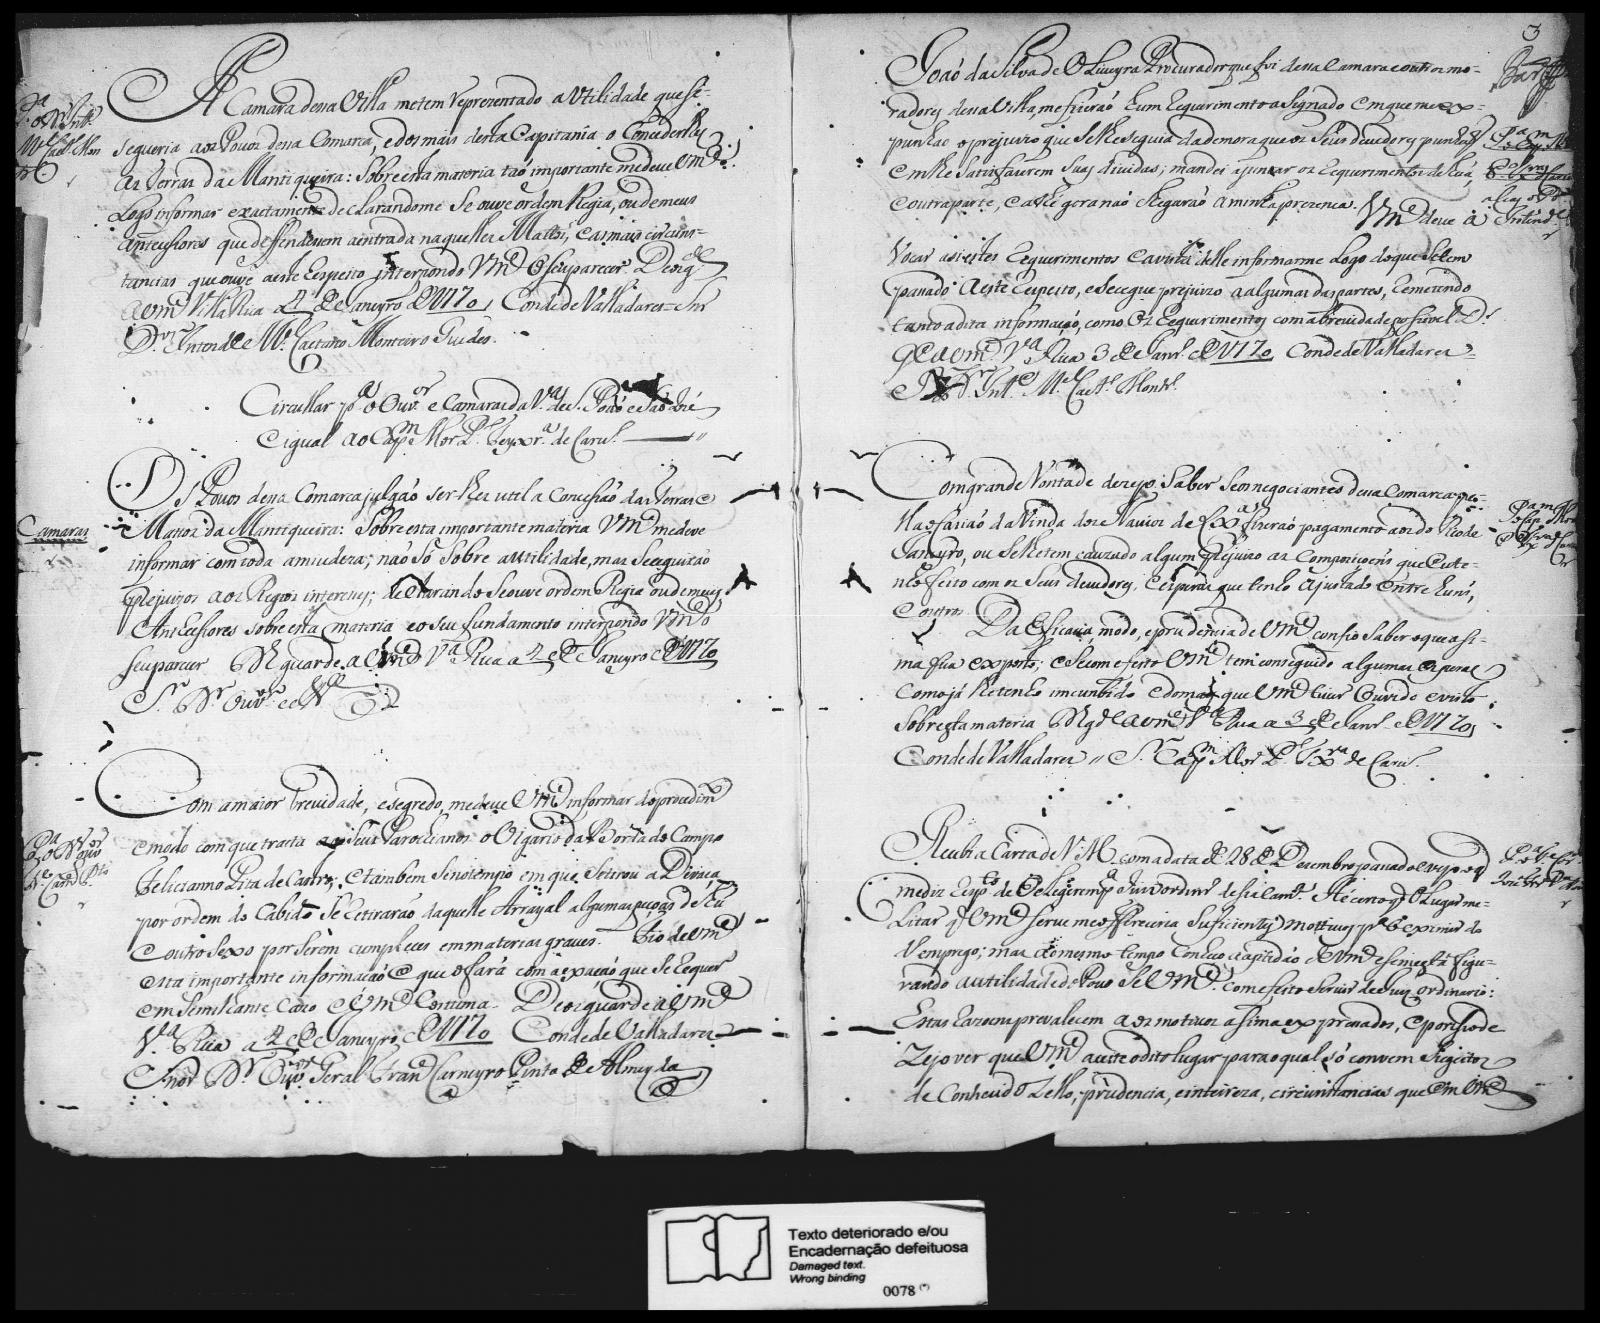 A Camara dessa Villa metem reprezentado a utilidade que se
segueria aos Povos dessa Comarca, e dos mais desta Capitania o Concederlhes
as terras da Mantiqueira: Sobre esta materia tao importante me deve Vm.ce
Logo informar exactamente declarandome Se ouve ordem Regia, ou de meus
Antecessores que deffendessem a entrada naquelles Mattos, e as mais circuns-
tancias que ouve a este respeito interpondo Vm.ce o seu parecer. Deos g.de
a Vm.ce Villa Rica a 4 de Janeyro de 1770, Conde de Valladares = Snr
D.or Intend.e M.el Caetano Monteiro Guedes.
Circullar p.a o Ouv.or e Camaras da V.a de S. João e São José
e igual ao Cap.m Mor P.o Teyxr.a de Carv.o
Os Povos dessa Comarca julgão ser-lhes util a Concessão das terras e
Mattos da Mantiqueira: Sobre esta importante materia Vm.ce me deve
informar com toda a miudeza; não Só Sobre a utilidade, mas Se seguirão
prejuizos aos Regios interesses; declarando Se ouve ordem Regia ou de meus
Antecessores sobre esta materia e o seu fundamento interpondo Vm.ce o
seu parecer D.s guarde a Vm.ce V.a Rica a 4 de Janeyro de 1770
S.r D.r Ouv.or
Camaras
Com a maior brevidade, e segredo, me deve Vm.ce informar do procedim.to
e modo com que tracta aos seus Parochianos o Vigario da Borda do Campo
Feliciano Pita de Castro; e tambem Se no tempo em que Se tirou a Devaça
por ordem do Cabido Se retirarão daquelle Arrayal algumas peçoas de hu
e outro sexo por Serem cumpleces em materias graves. Fio de Vm.ce
esta importante informação e que o fará com a exação que Se requer
em Semilhante Cazo e Vm.ce Costuma. Deos guarde a Vm.ce
V.a Rica a 4 de Janeyro de 1770 Conde de Valladares
Snor D.r Ouv.or Geral Fran.co Carneyro Pinto de Almeyda
3
João da Silva de Oliveyra Procurador que foi dessa Camara e outros mo-
radores dessa Villa, me fizerão hum requirimento asignado em que me ex-
punhão o prejuizo que Se lhe seguia da demora que os Seus devedores punhão
em lhe Satisfazerem Suas dividas; mandei ajuntar os requerimentos de hua,
e outra parte, e a the gora não chegarão a minha prezenca. Vm.ce deve a
vocar a si estes requerimentos e a vista delles informarme Logo do que Se tem
passado a este respeito, e Se segue prejuizo a algumas das partes, remetendo
tanto a dita informação, como os requirimentos com a brevidade possivel D.s
g.de a Vm.ce V.a Rica 3 de Janr.o de 1770 Conde de Valladares =
D.r Int.e M.el Caet.o Montr.o
Com grande vontade dezejo Saber Se os negociantes dessa Comarca pres-
na ocazião da vinda dos Navios de Lx.a fizerão pagamento aos do Rio de
Janeyro, ou Se lhe tem cauzado algum prejuizo as Compoziçoens que este
feito com os Seus devedores, e esperas que tenho ajustado entre huns,
e outros.
Da eficacia, modo, e prudencia de Vm.ce confio saber o que asi-
ma fica exposto; e Se com efeito Vm.ce tem conseguido algumas esperas
como já lhe tenho incumbido e do mais que Vm.ce tiver ouvido e visto
Sobre esta materia D.s g.de a Vm.ce V.a Rica a 3 de Janr.o de 1770
Conde de Valladares // S.r Cap.m Mor P.o Teyxr.a de Carv.o
Recebi a Carta de Vm.ce com a data de 28 de Dezembro passado e vejo o q
me diz resp.to de Seleger em p.a Juis ordinr.o dessa Cam.ra He certo q o Lugar mi-
Litar q Vm.ce serve me offereceria Suficientes mottivos p.a o eximir do
dito emprego; mas ao mesmo tempo Conheço a aptidão de Vm.ce e se me está figu-
rando a utilidade do Povo Se Vm.ce com efeito Servir de Juiz ordinario:
Estas razoens prevalecem aos motivos asima expressados, e por isso de
zejo ver que Vm.ce aceite o dito lugar para o qual só convem Sugeitos
de Conhecido Zello, prudencia, e inteireza, circunstancias que em Vm.ce
Texto deteriorado e/ou
Encadernação defeituosa
Damaged text.
Wrong binding
0078